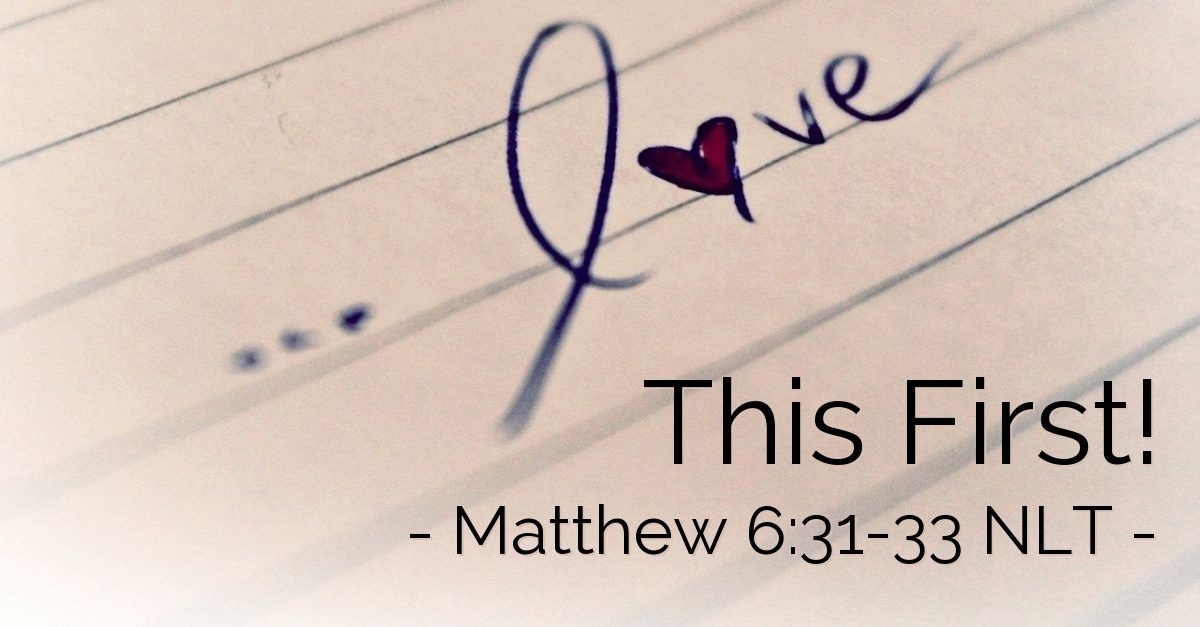 ... love
This First!
- Matthew 6:31-33 NLT -